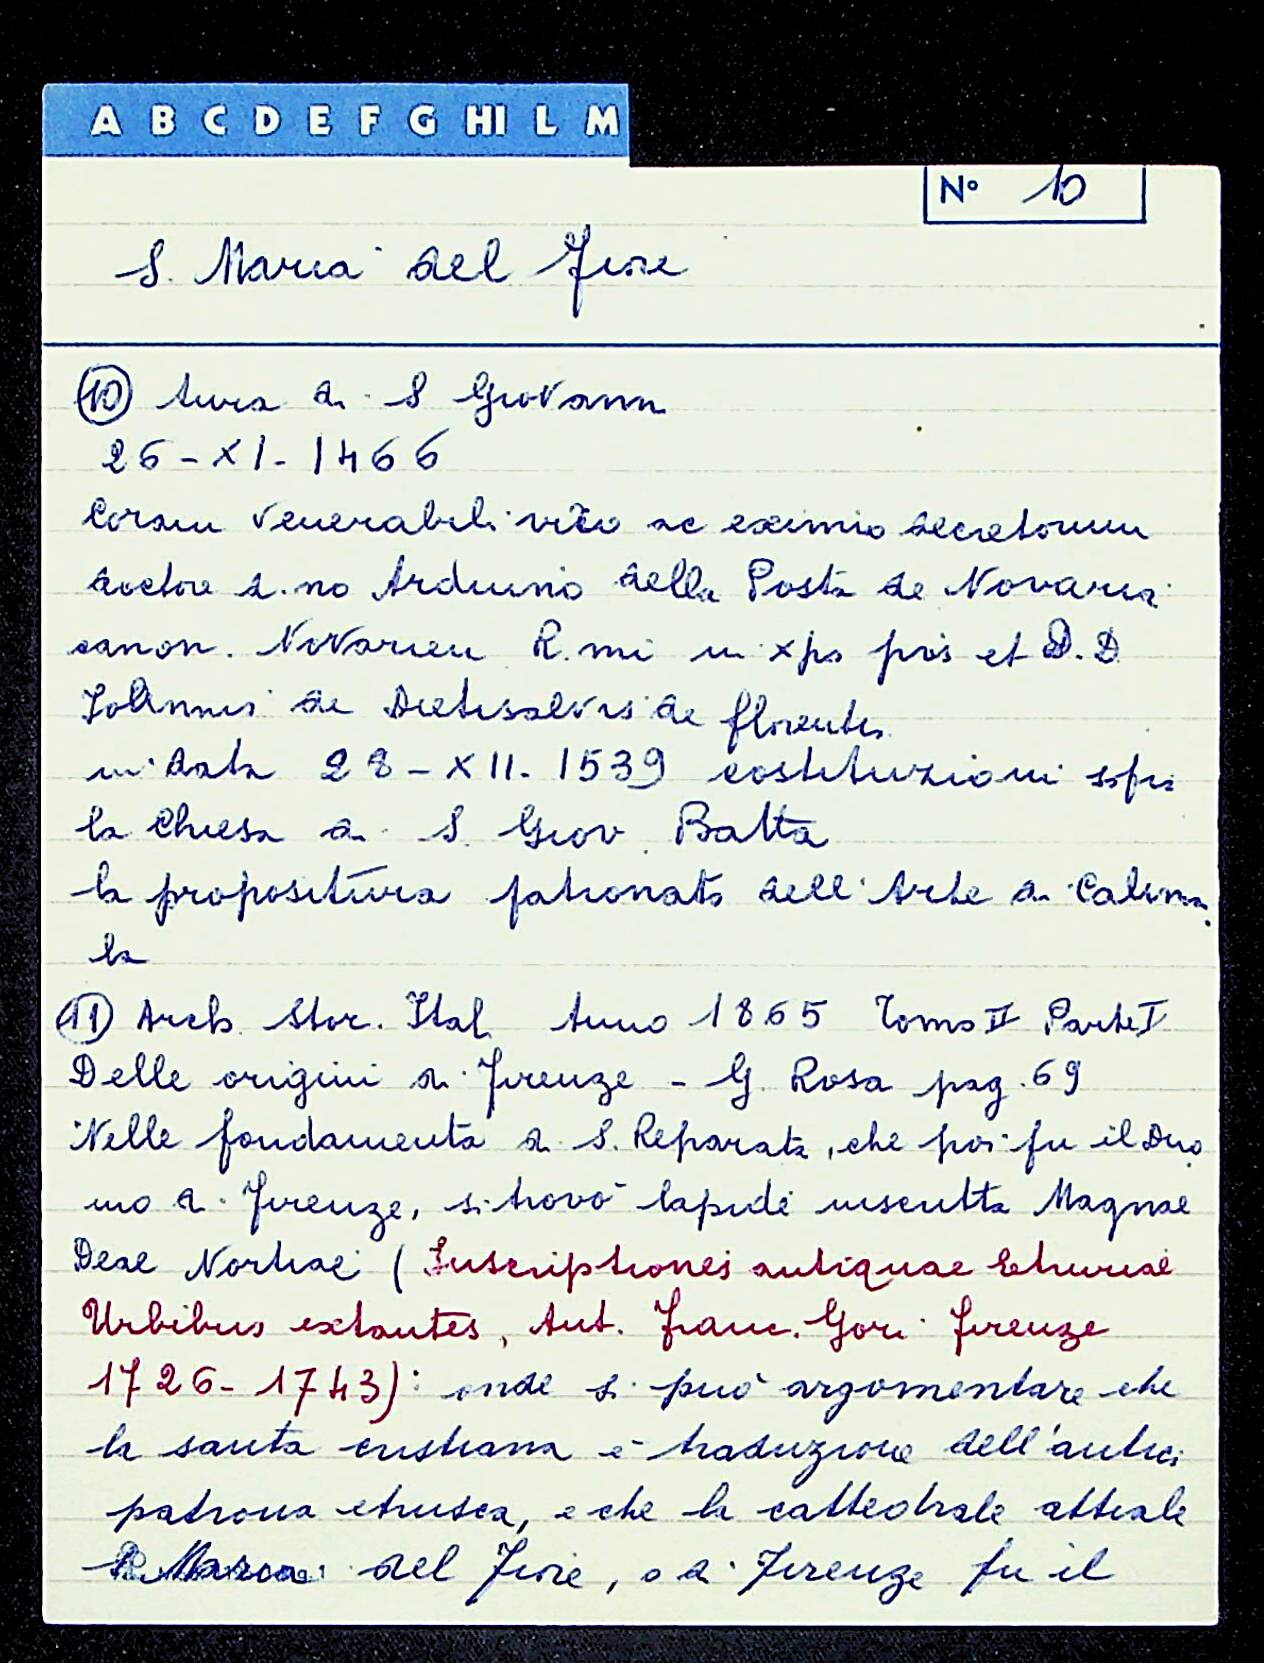 A B C D E F G HI L M
Nº 10
S. Maria del Fiore
10 Aura di S Giovanni
26-XI-1466
Coram venerabili viro ac eximio decretorum
doctore d.no Arduino della Posta de Novaria
canon. Novarien R.mi in xpo pris et D.D
Iohannis de Dietisalvis de florentia
in data 28-XII-1539 costituzioni sopra
la Chiesa di S. Giov. Batta
la propositura patronato dell'Arte di Calima
la
11 Arch. Stor. Ital. Anno 1865 Tomo II Parte I
Delle origini di Firenze - G. Rosa pag. 69
Nelle fondamenta di S. Reparata, che poi fu il Duo
mo di Firenze, si trovò lapide inscritta Magnae
Deae Nortiae (Inscriptiones antiquae Etruriae
Urbibus extantes, Ant. Franc. Gori Firenze
1726-1743): onde si può argomentare che
la santa cristiana è traduzione dell'antica
patrona etrusca, e che la cattedrale attuale
S. Maria del Fiore, o di Firenze fu il